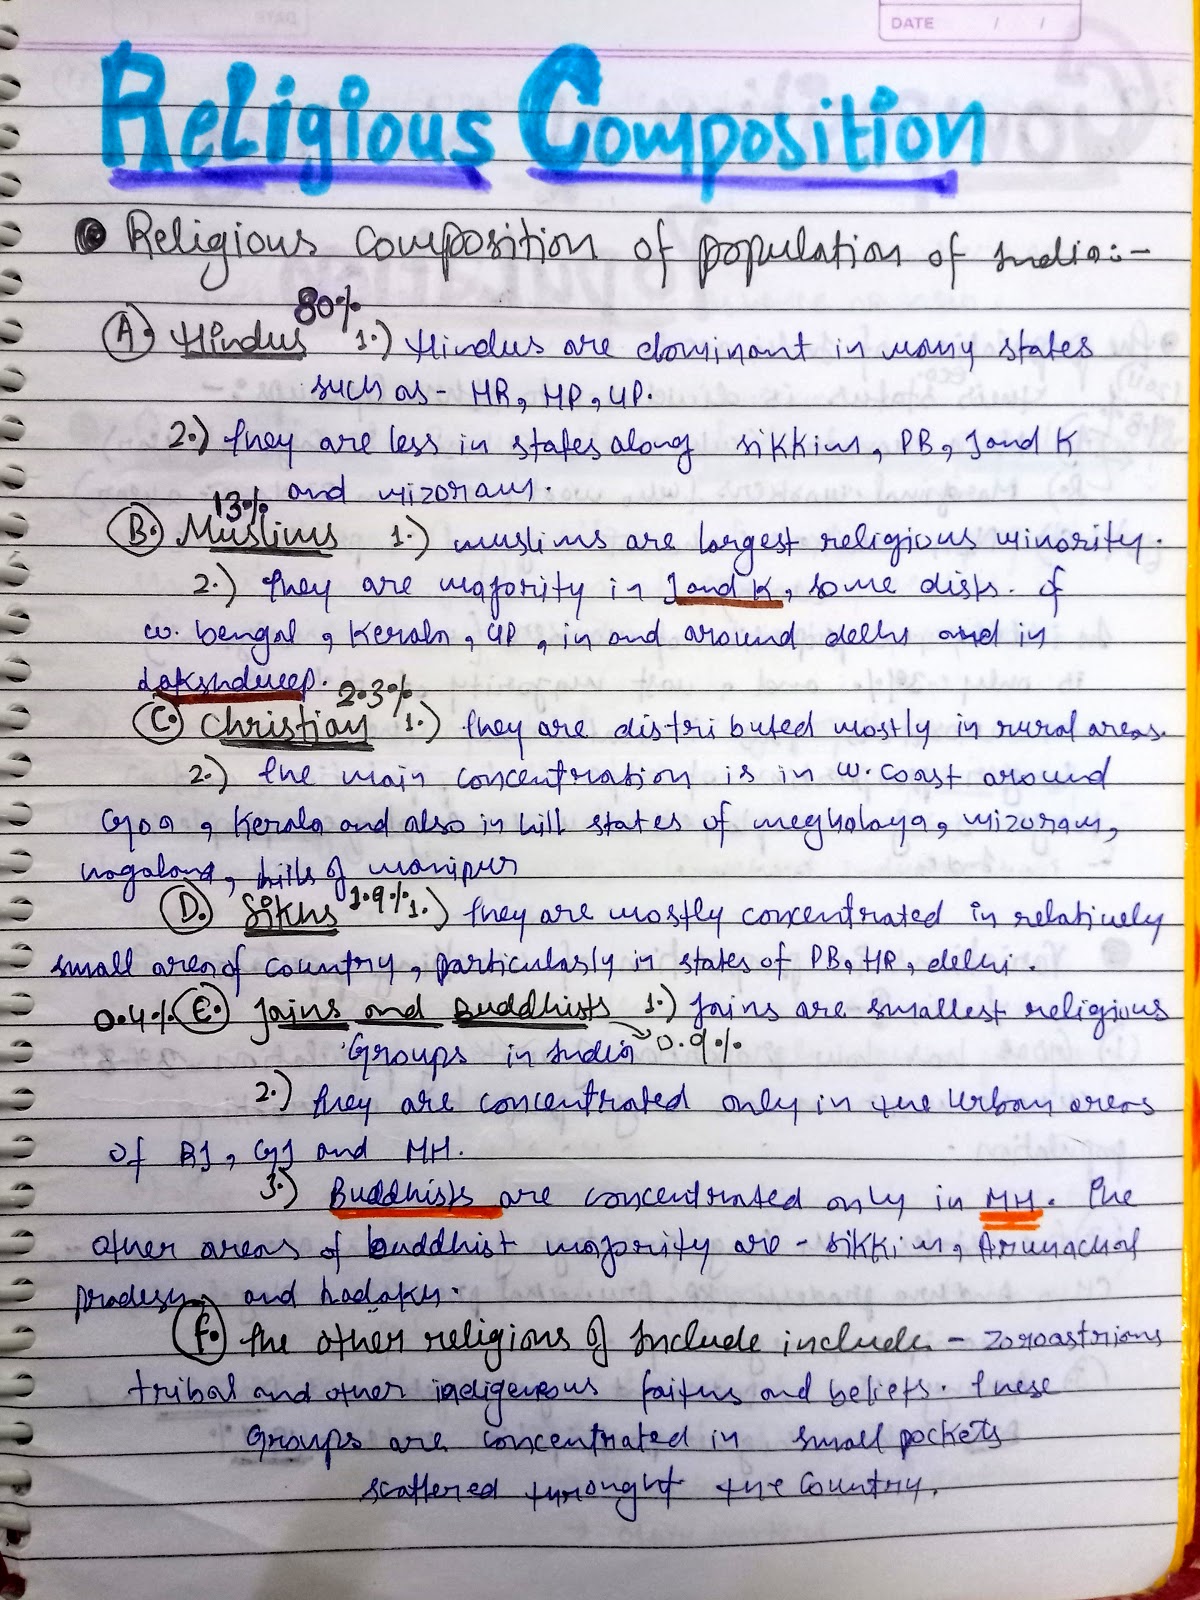 DATE / /
Religious Composition
Religious composition of population of India:-
80%
A. Hindus 1.) Hindus are dominant in many states
such as - HR, MP, UP.
2.) They are less in states along sikkim, PB, J and K
and mizoram.
13%
B. Muslims 1.) muslims are largest religious minority.
2.) They are majority in J and K, some dists. of
w. bengal, Kerala, UP, in and around delhi and in
Lakshdweep.
2.3%
C. Christian 1.) They are distributed mostly in rural areas.
2.) The main concentration is in w. coast around
Goa, Kerala and also in hill states of meghalaya, mizoram,
nagaland, hills of manipur
D. Sikhs 1.9% 1.) They are mostly concentrated in relatively
small area of country, particularly in states of PB, HR, delhi.
0.4% E. Jains and Buddhists 1.) Jains are smallest religious
Groups in India 0.9%
2.) They are concentrated only in the Urban areas
of RJ, GJ and MH.
3.) Buddhists are concentrated only in MH. The
other areas of buddhist majority are - sikkim, Arunachal
pradesh, and Ladakh.
F. The other religions of Include include - zoroastrians
tribal and other indigenous faiths and beliefs. These
Groups are concentrated in small pockets
scattered throught the Country.